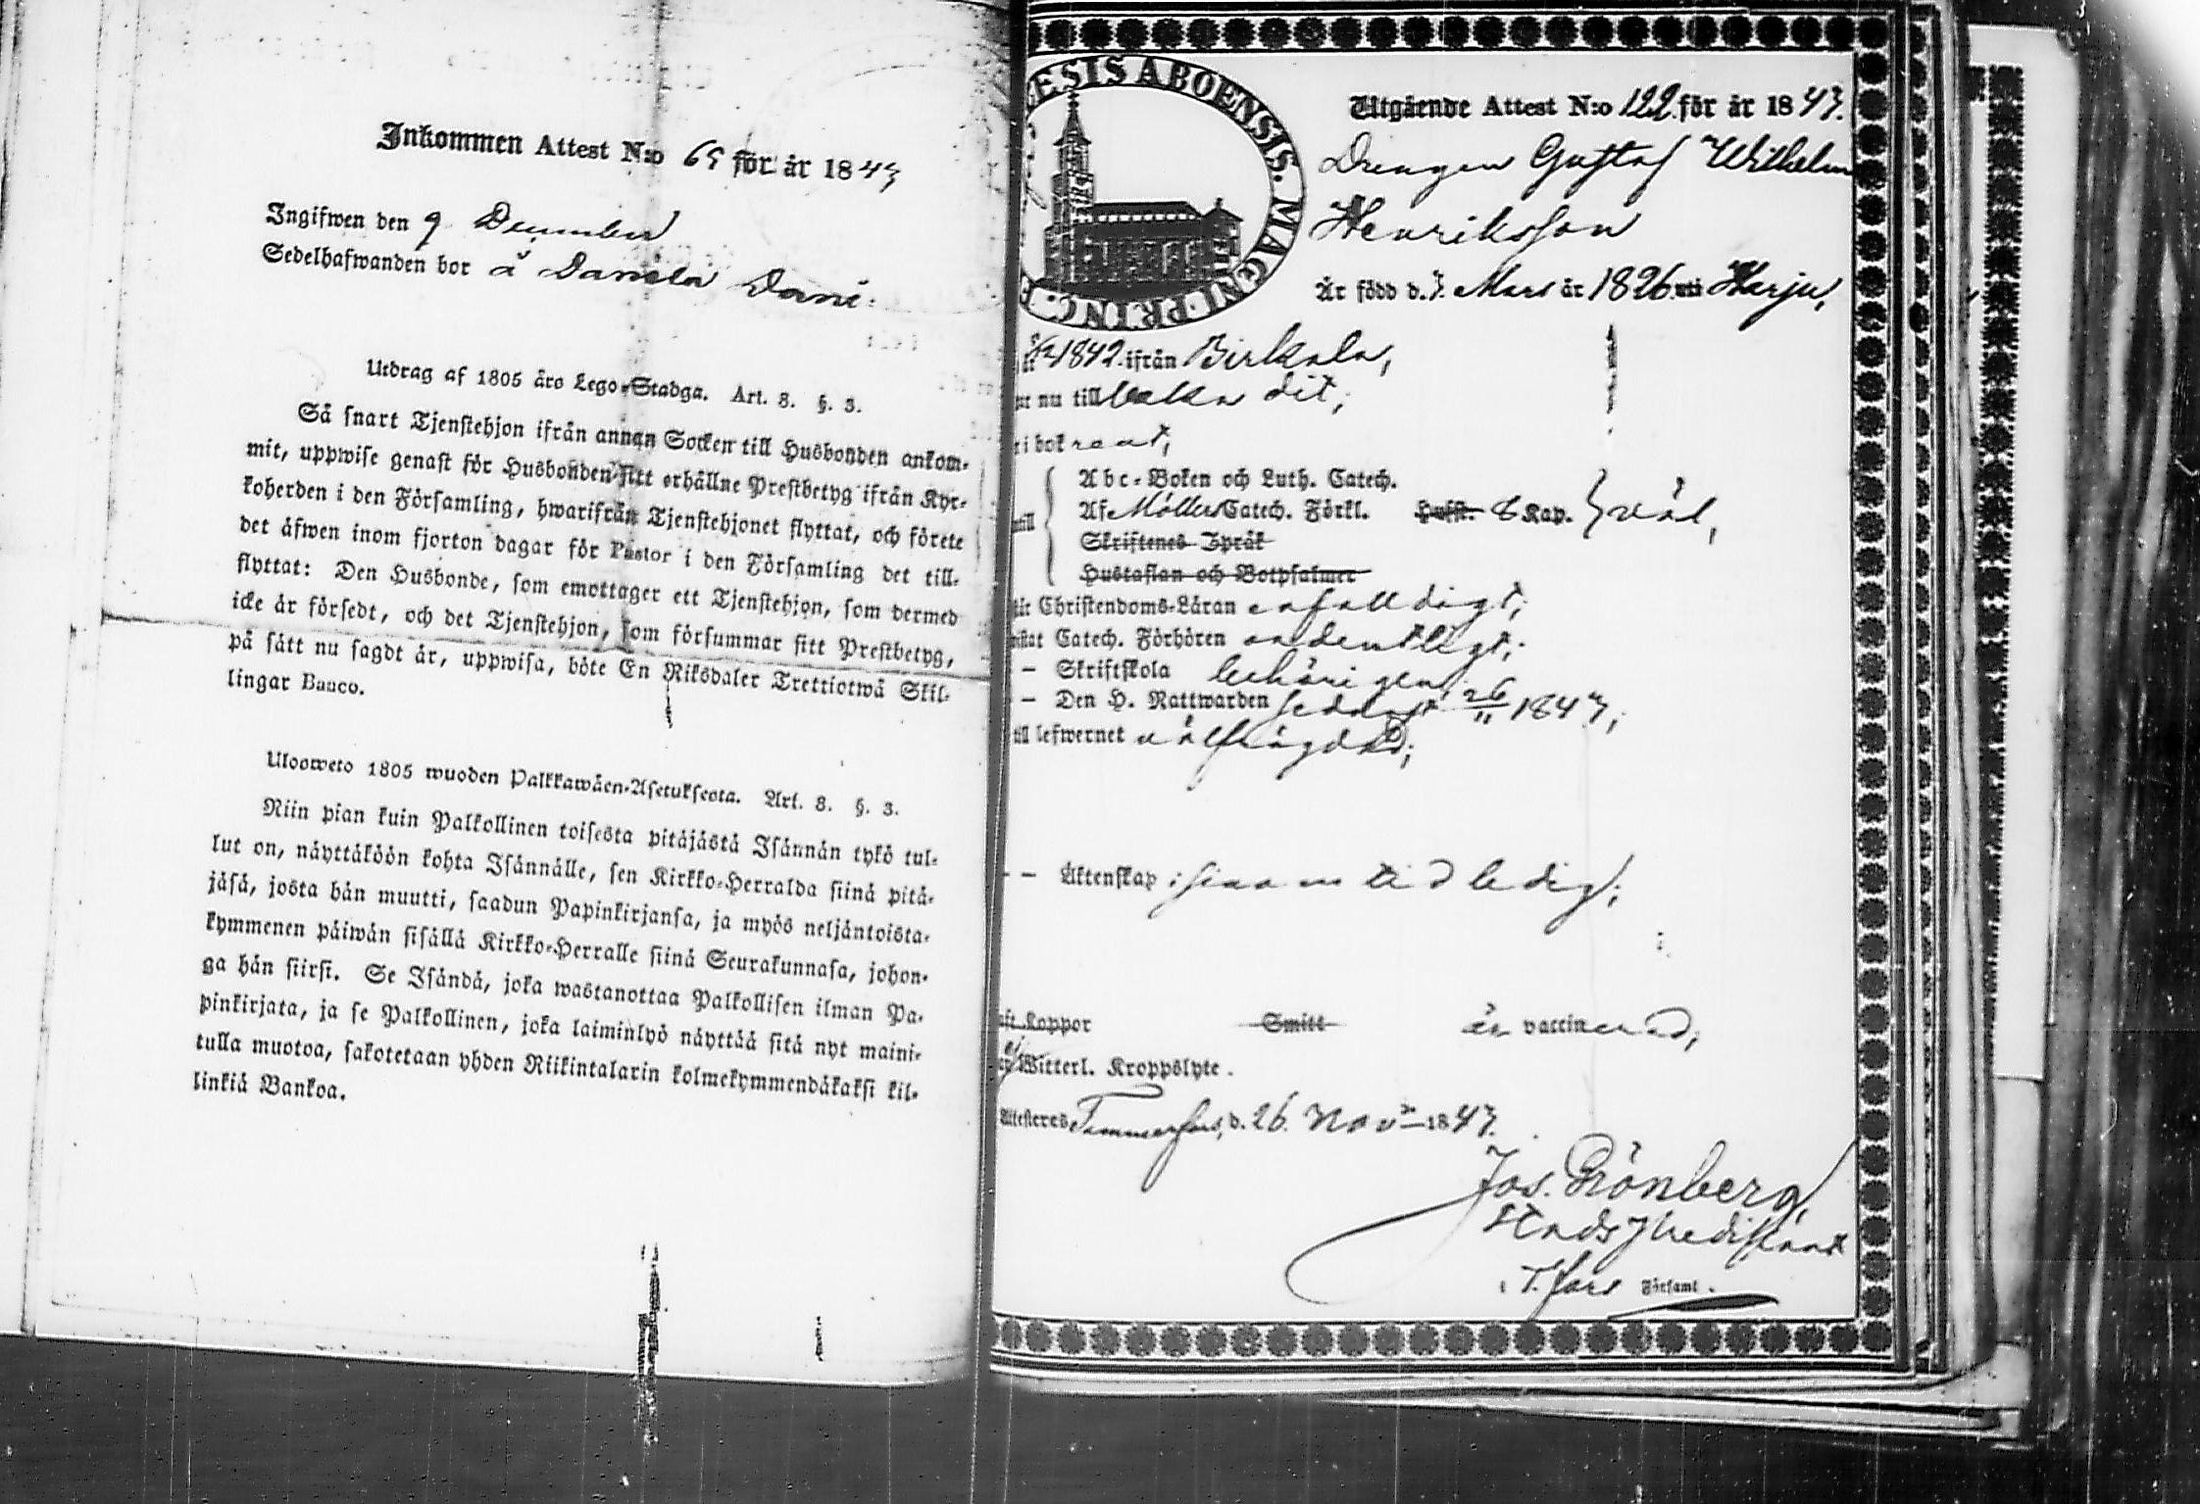 Inkommen Attest N:o 65 för år 1843
Ingifwen den 9 December
Sedelhafwanden bor å Daniela Dani:
Utdrag af 1805 års Lego-Stadga. Art. 8. §. 3.
Så snart Tjenstehjon ifrån annan Socken till Husbonden ankom-
mit, uppwise genast för Husbonden sitt erhållne Prestbetyg ifrån Kyr-
koherden i den Församling, hwarifrån Tjenstehjonet flyttat, och förete
det äfwen inom fjorton dagar för Pastor i den Församling det till-
flyttat: Den Husbonde, som emottager ett Tjenstehjon, som dermed
icke är försedt, och det Tjenstehjon, som försummar sitt Prestbetyg,
på sätt nu sagdt är, uppwisa, böte En Riksdaler Trettiotwå Skil-
lingar Banco.
Ulosweto 1805 wuoden Palkkawäen-Asetuksesta. Art. 8. §. 3.
Niin pian kuin Palkollinen toisesta pitäjästä Isännän tykö tul-
lut on, näyttäköön kohta Isännälle, sen Kirkko-Herralda siinä pitä-
jäsä, josta hän muutti, saadun Papinkirjansa, ja myös neljäntoista-
kymmenen päiwän sisällä Kirkko-Herralle siinä Seurakunnasa, johon-
ga hän siirsi. Se Isändä, joka wastanottaa Palkollisen ilman Pa-
pinkirjata, ja se Palkollinen, joka laiminlyö näyttää sitä nyt maini-
tulla muotoa, sakotetaan yhden Riikintalarin kolmekymmendäkaksi kil-
linkiä Bankoa.
ESIS ABOENSIS. MAGNI. PRINC. F
Utgående Attest N:o 122 för år 1843.
Drengen Gustaf Wilhelm
Henriksson
Är född d. 7. Mars år 1826 uti Harju,
1842 ifrån Birkala,
nu till baka dit,
i bok rent,
Abc-Boken och Luth. Catech.
Af Möllers Catech. Förkl. Hufst. 8 Kap. } väl,
Skriftenes Språk
Hustaflan och Botpsalmer
Christendoms-Läran enfalldigt,
Catech. Förhören ordentligt,
– Skriftskola behörigen,
– Den H. Nattwarden sednast 26/11 1843,
till lefwernet välfrägdad,
– – Äktenskap: sin am tid ledig,
Koppor Smitt är vaccinerad,
ej Witterl. Kroppslyte.
Attesteres Tammerfors, d. 26. Nov:r 1843.
Jos. Grönberg,
Stads Predikant
i T.fors Församl.